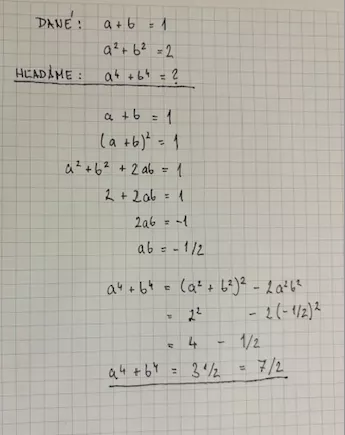 DANÉ: a + b = 1
a² + b² = 2
HĽADÁME: a⁴ + b⁴ = ?
a + b = 1
(a + b)² = 1
a² + b² + 2ab = 1
2 + 2ab = 1
2ab = -1
ab = - 1/2
a⁴ + b⁴ = (a² + b²)² - 2a²b²
= 2² - 2(-1/2)²
= 4 - 1/2
a⁴ + b⁴ = 3 1/2 = 7/2